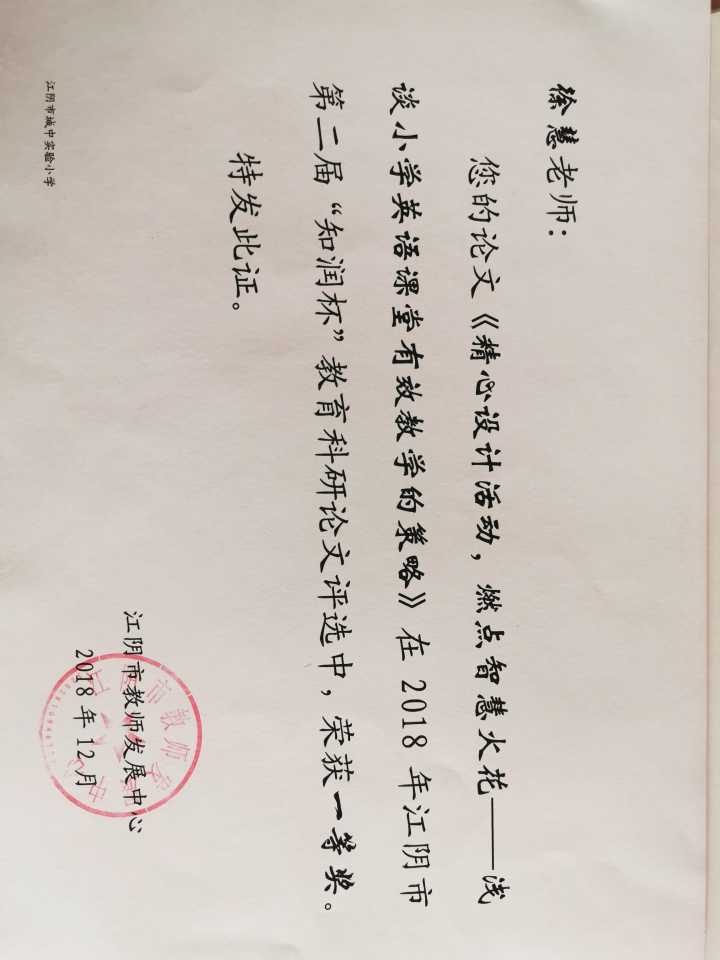 徐慧老师：
您的论文《精心设计活动，燃点智慧火花——浅
谈小学英语课堂有效教学的策略》在2018年江阴市
第二届“知润杯”教育科研论文评选中，荣获一等奖。
特发此证。
江阴市教师发展中心
2018年12月
江阴市城中实验小学